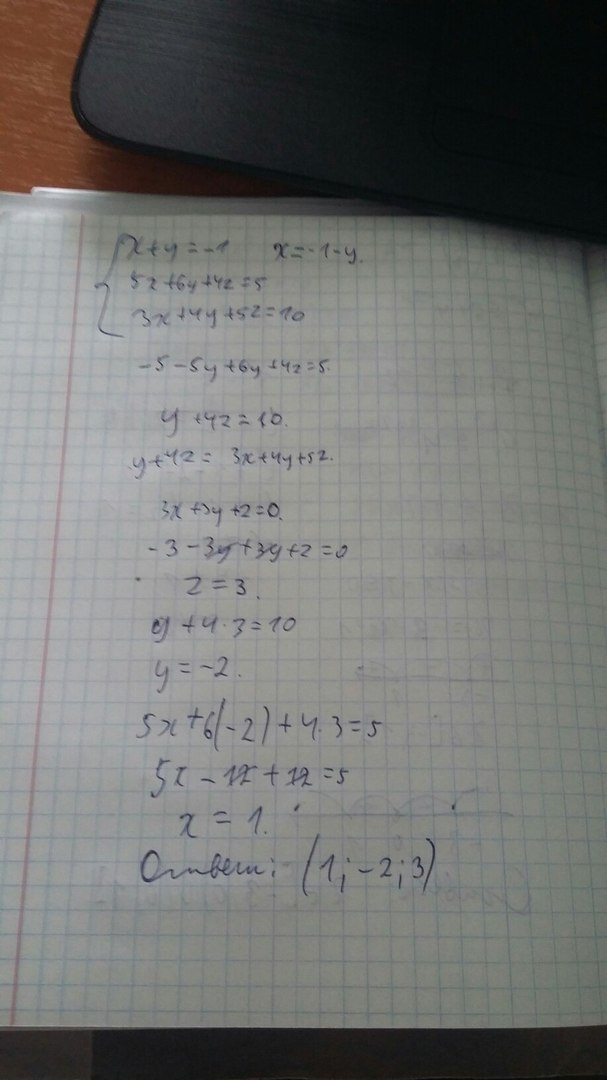 x+y=-1 x=-1-y.
5x+6y+4z=5
3x+4y+5z=10
-5-5y+6y+4z=5.
y+4z=10.
y+4z= 3x+4y+5z.
3x+3y+z=0.
-3-3y+3y+z=0
z=3.
y+4·3=10
y=-2.
5x+6(-2)+4·3=5
5x-12+12=5
x=1.
Ответ: (1;-2;3)